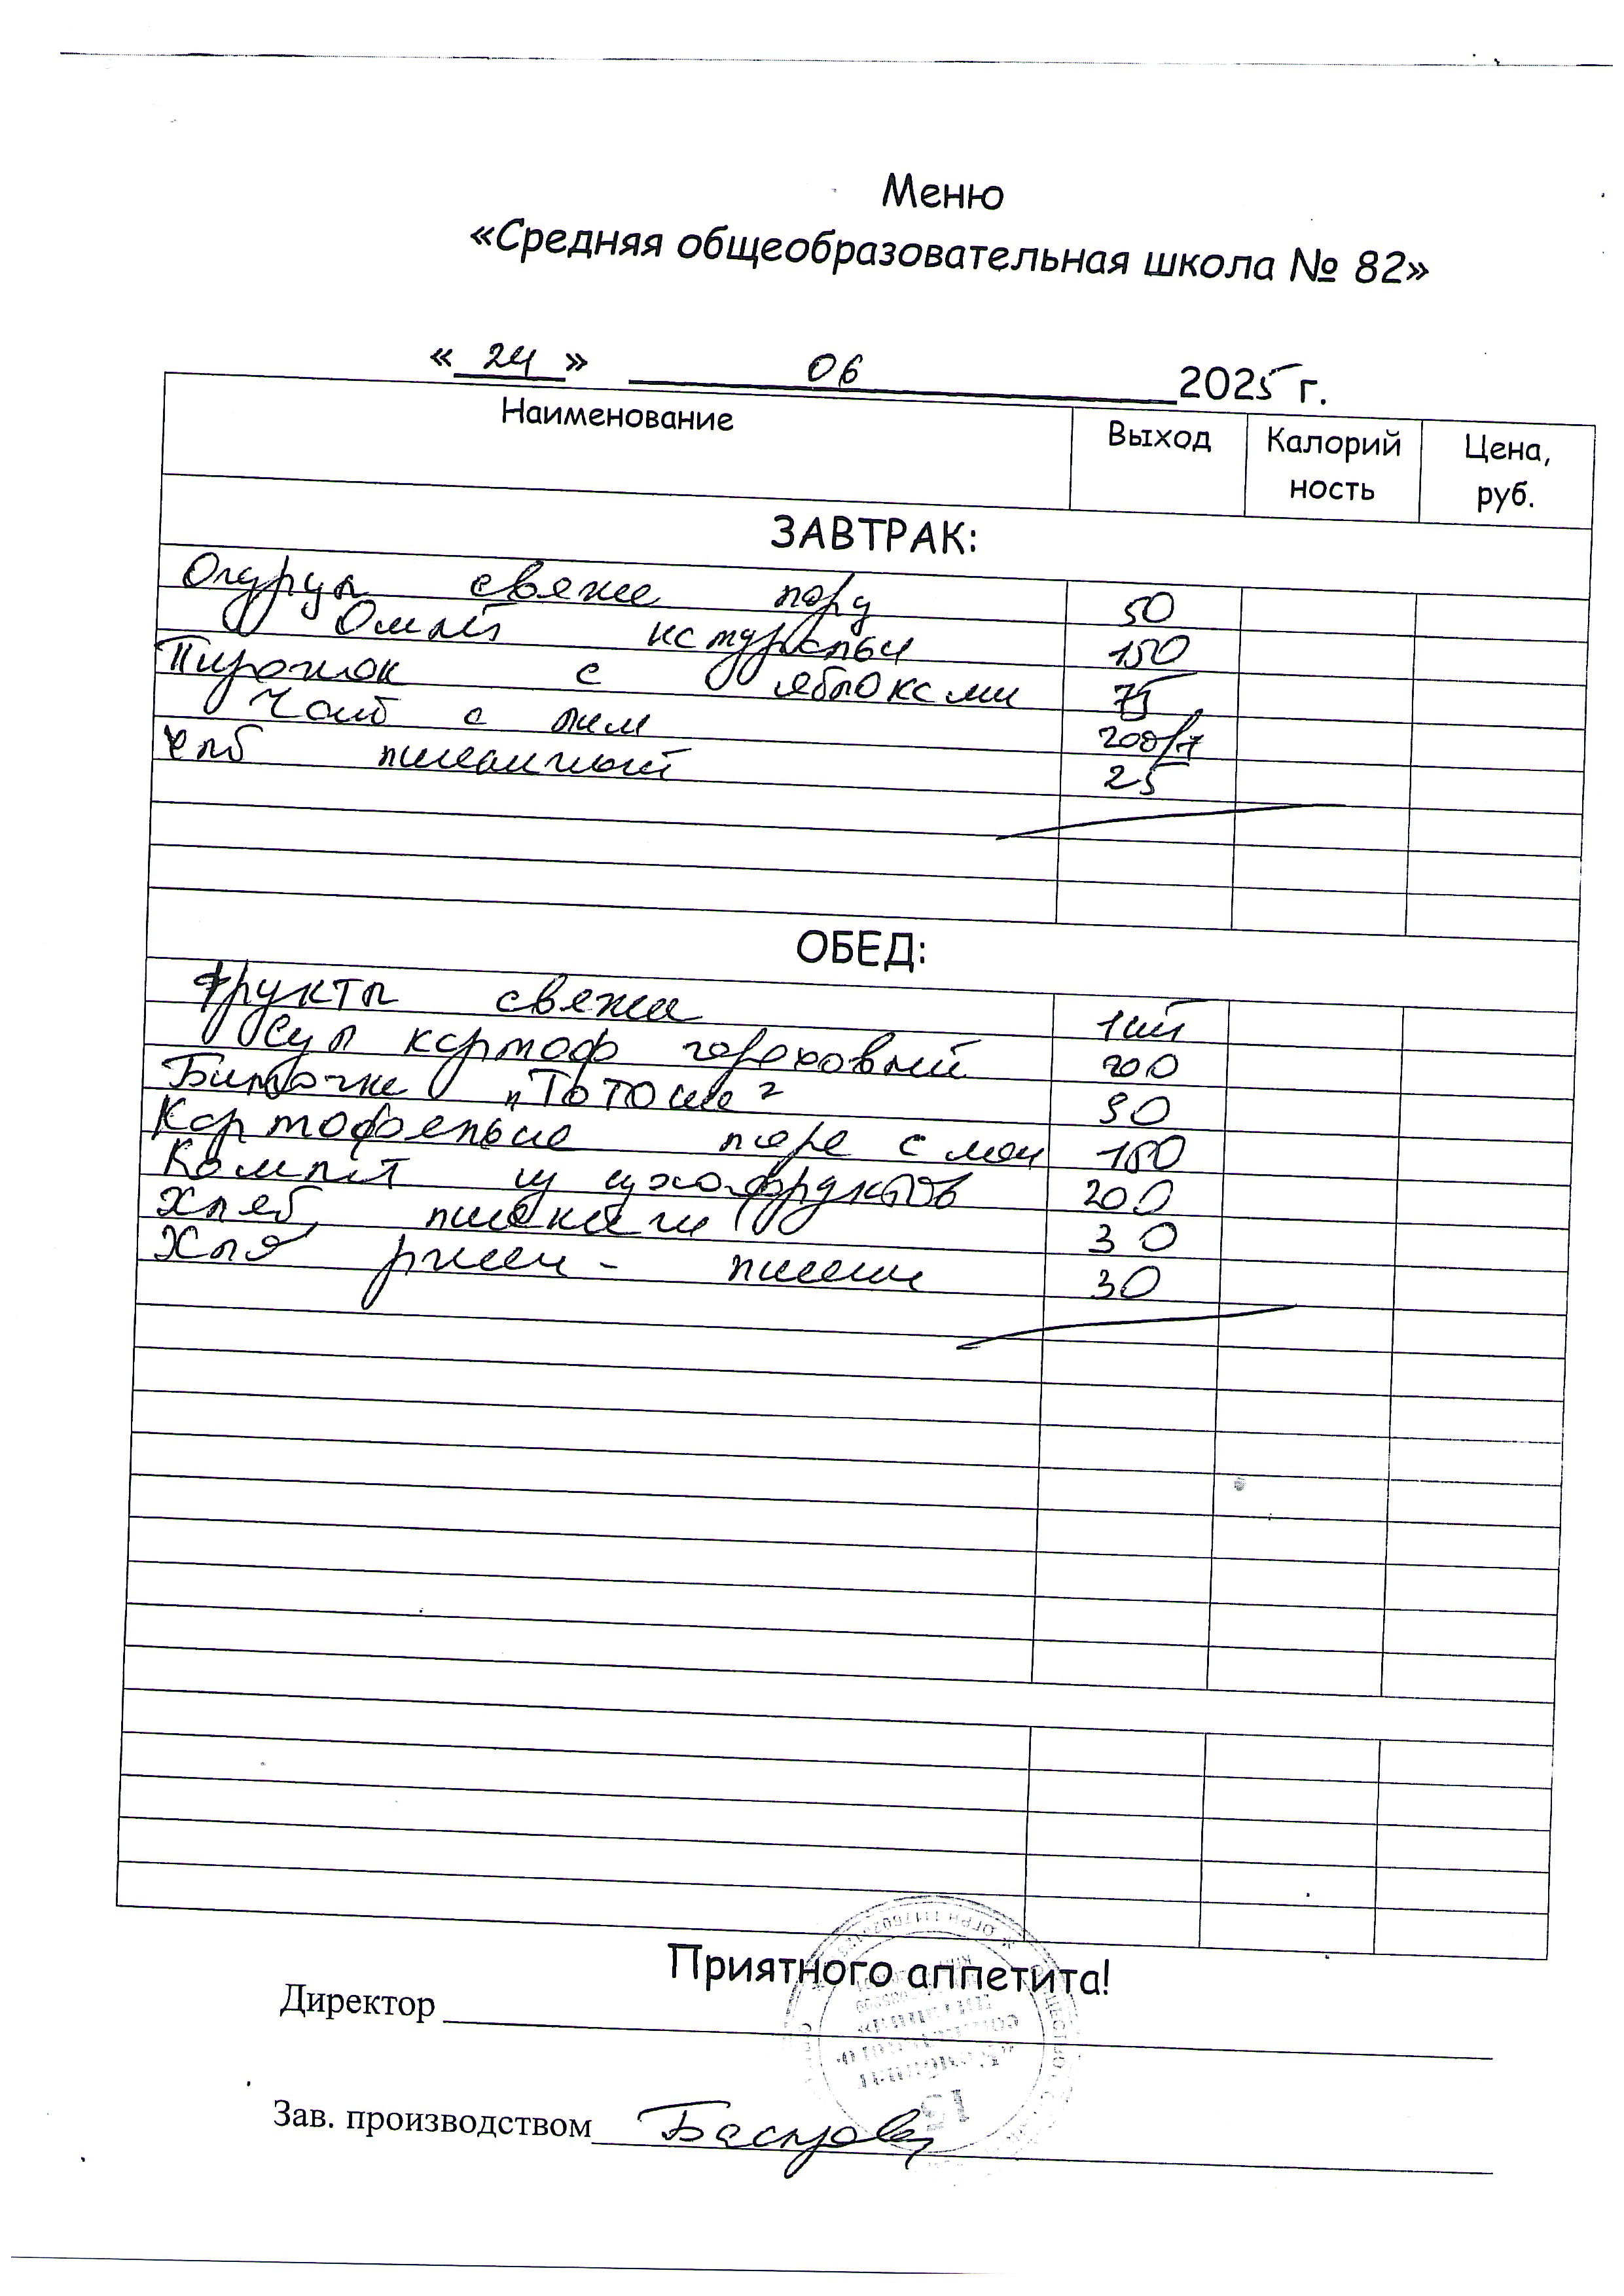 Меню
«Средняя общеобразовательная школа № 82»
« 24 » 06 2025 г.
Наименование Выход Калорий ность Цена, руб.
ЗАВТРАК:
Огурцы свежие порц 50
Омлет натуральн 150
Пирожок с яблоками 75
Чай с лим 200/7
Хлеб пшеничный 25
ОБЕД:
Фрукты свежие 1шт
Суп картоф гороховый 200
Биточки "Тотоша" 90
Картофельное пюре с мсл 150
Компот из сухофруктов 200
Хлеб пшенични 30
Хлеб ржан - пшенич 30
Приятного аппетита!
Директор
Зав. производством